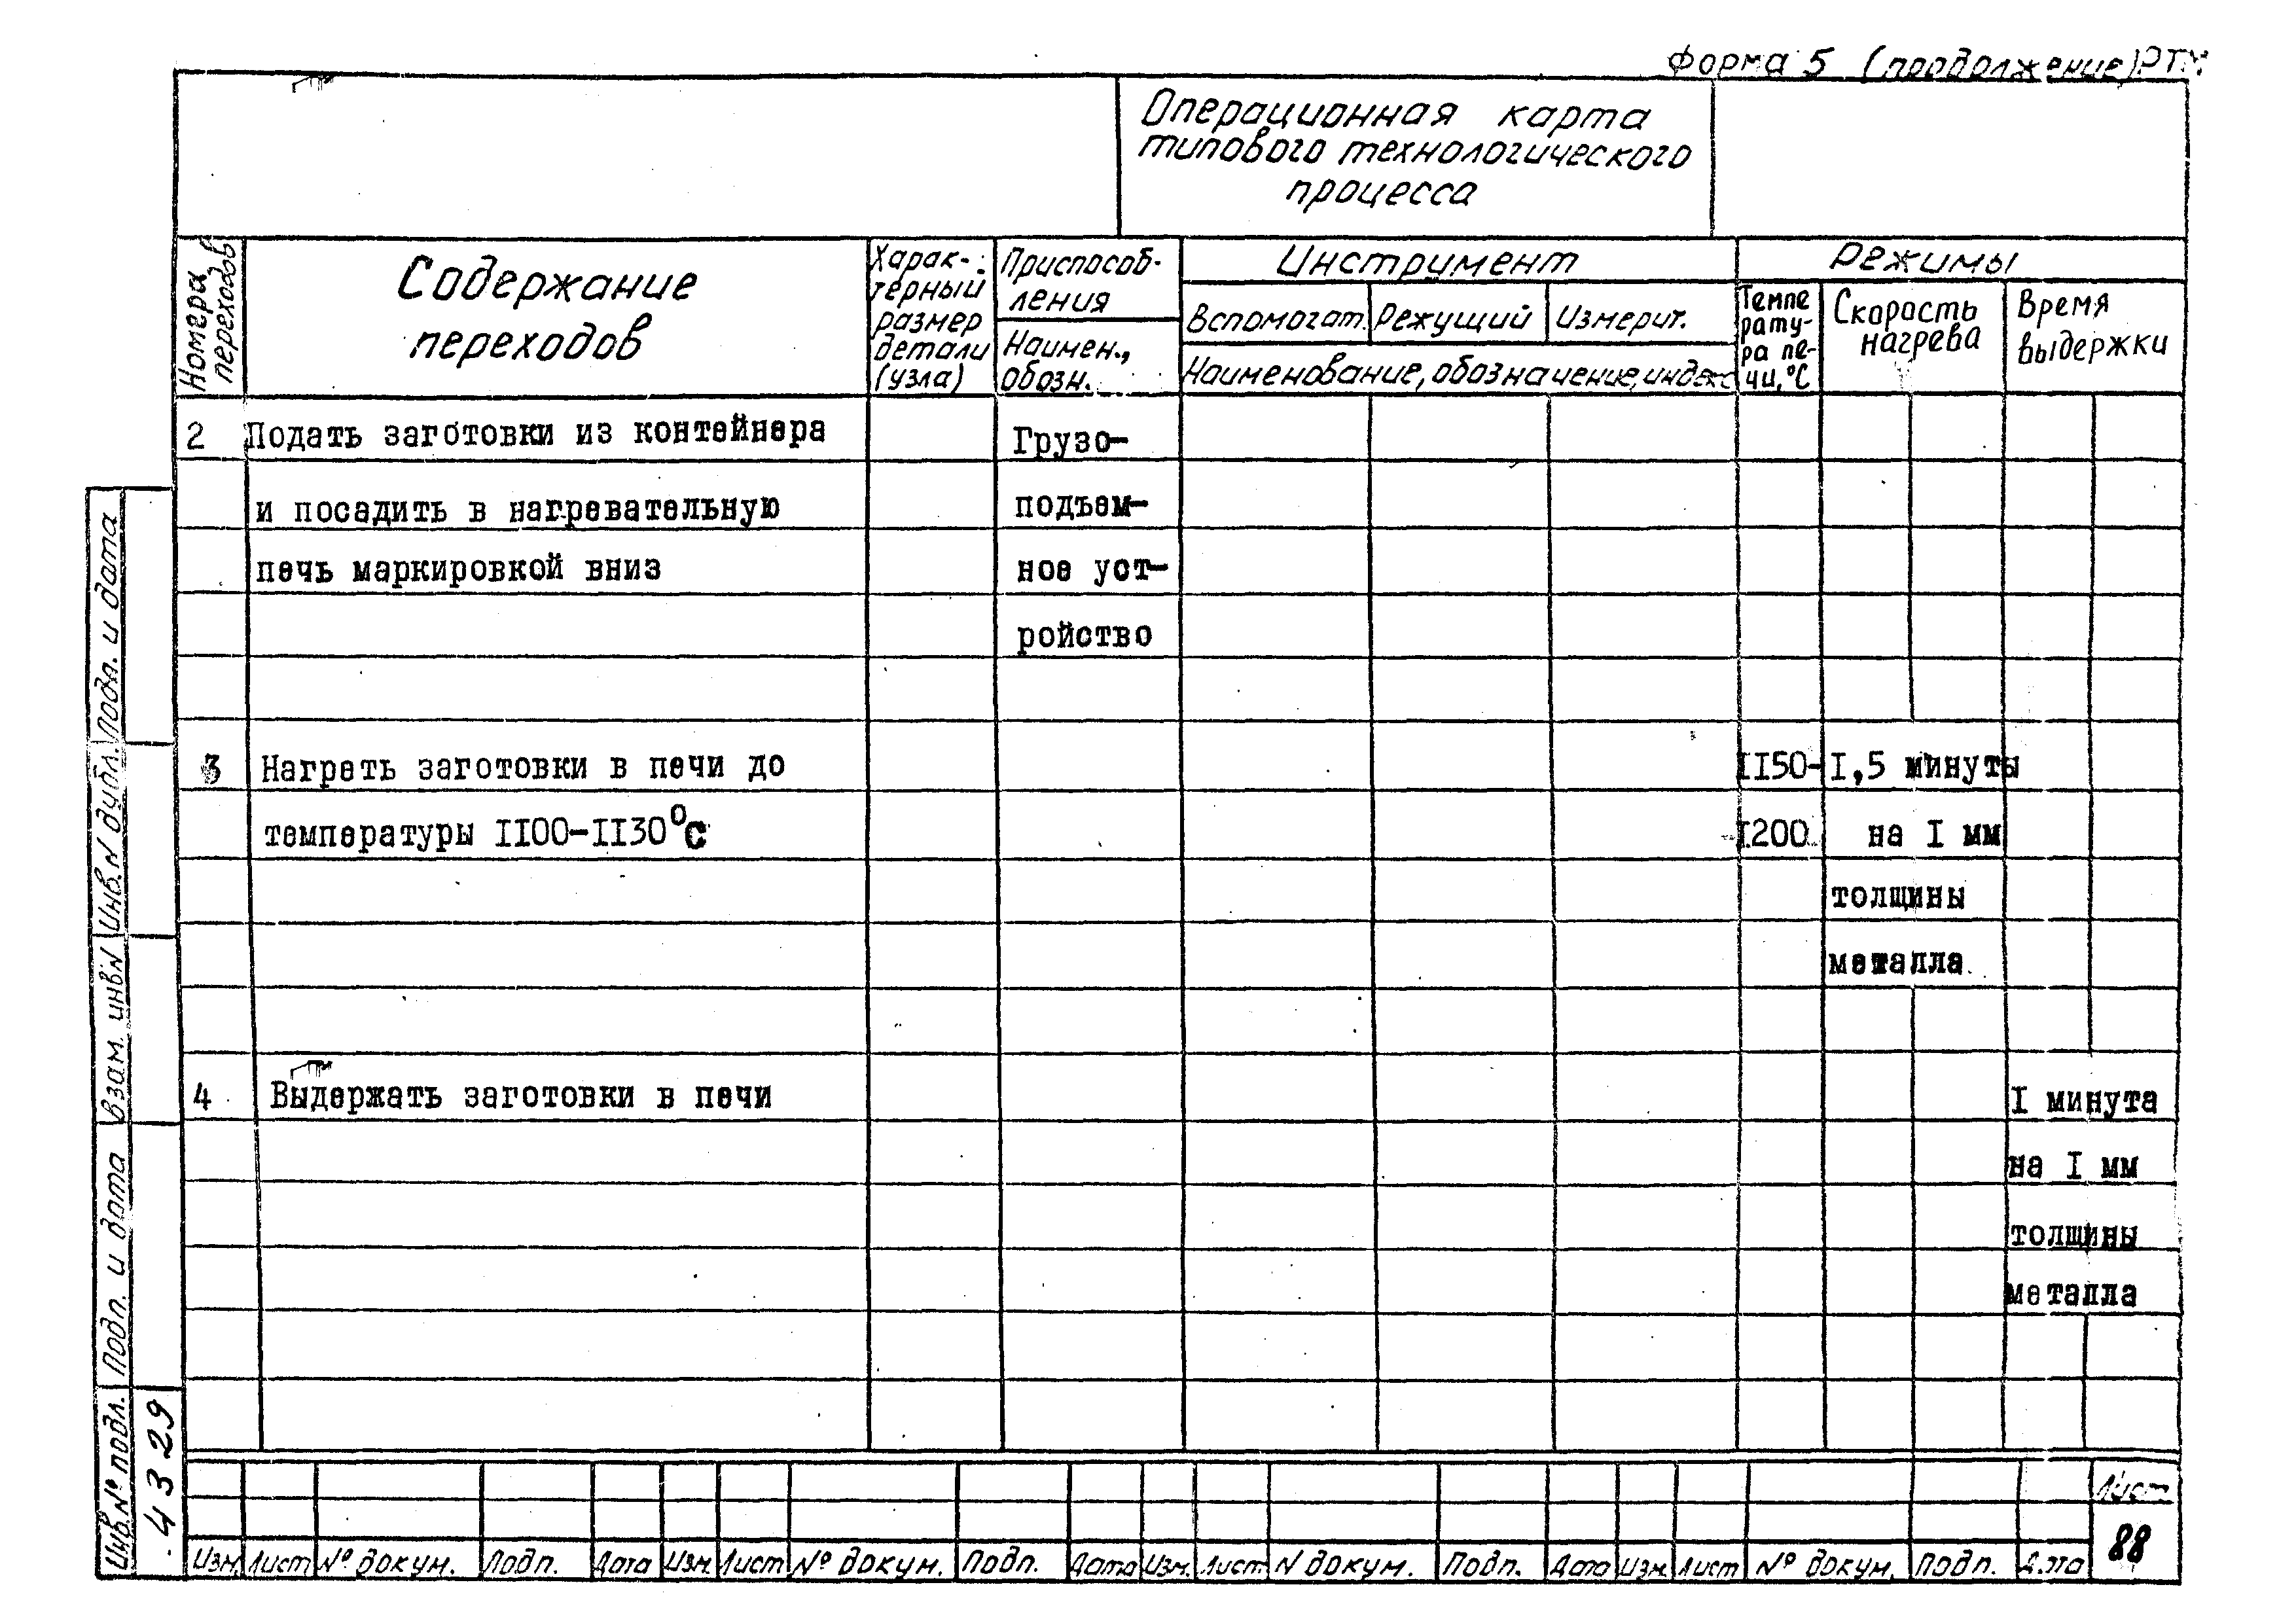 Форма 5 (продолжение) РТМ
Операционная карта
типового технологического
процесса
Номера
переходов
Содержание
переходов
Харак-
терный
размер
детали
(узла)
Приспособ-
ления
Наимен.,
обозн.
Инструмент
Вспомогат.
Режущий
Измерит.
Наименование, обозначение, индекс
Режимы
Темпе
рату-
ра пе-
чи, °С
Скорость
нагрева
Время
выдержки
2 Подать заготовки из контейнера Грузо-
и посадить в нагревательную подъем-
печь маркировкой вниз ное уст-
ройство
3 Нагреть заготовки в печи до II50- I,5 минуты
температуры II00-II30°С I200 на I мм
толщины
металла
4 Выдержать заготовки в печи I минута
на I мм
толщины
металла
Подп. и дата
Инв.N дубл.
Взам. инвN
Подп. и дата
Инв.№ подл.
4329
Лист
88
Изм. Лист № докум. Подп. Дата Изм. Лист № докум. Подп. Дата Изм. Лист N докум. Подп. Дата Изм. Лист № докум. Подп. Дата